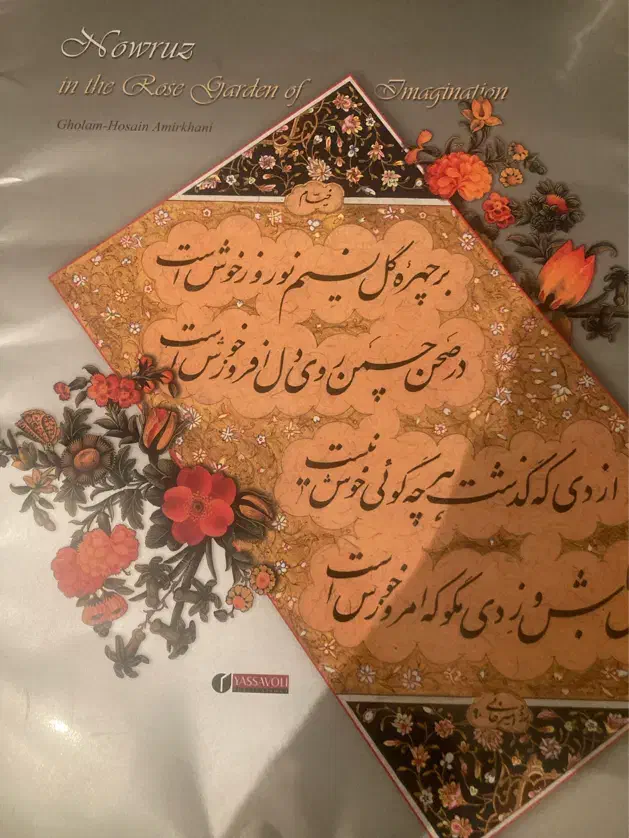 Nowruz
in the Rose Garden of Imagination
Gholam-Hosain Amirkhani
خیام
بر چهرهٔ گل نسیم نوروز خوش است
در صحن چمن روی دل افروز خوش است
از دی که گذشت هر چه گوئی خوش نیست
باش و ز دی مگو که امروز خوش است
YASSAVOLI